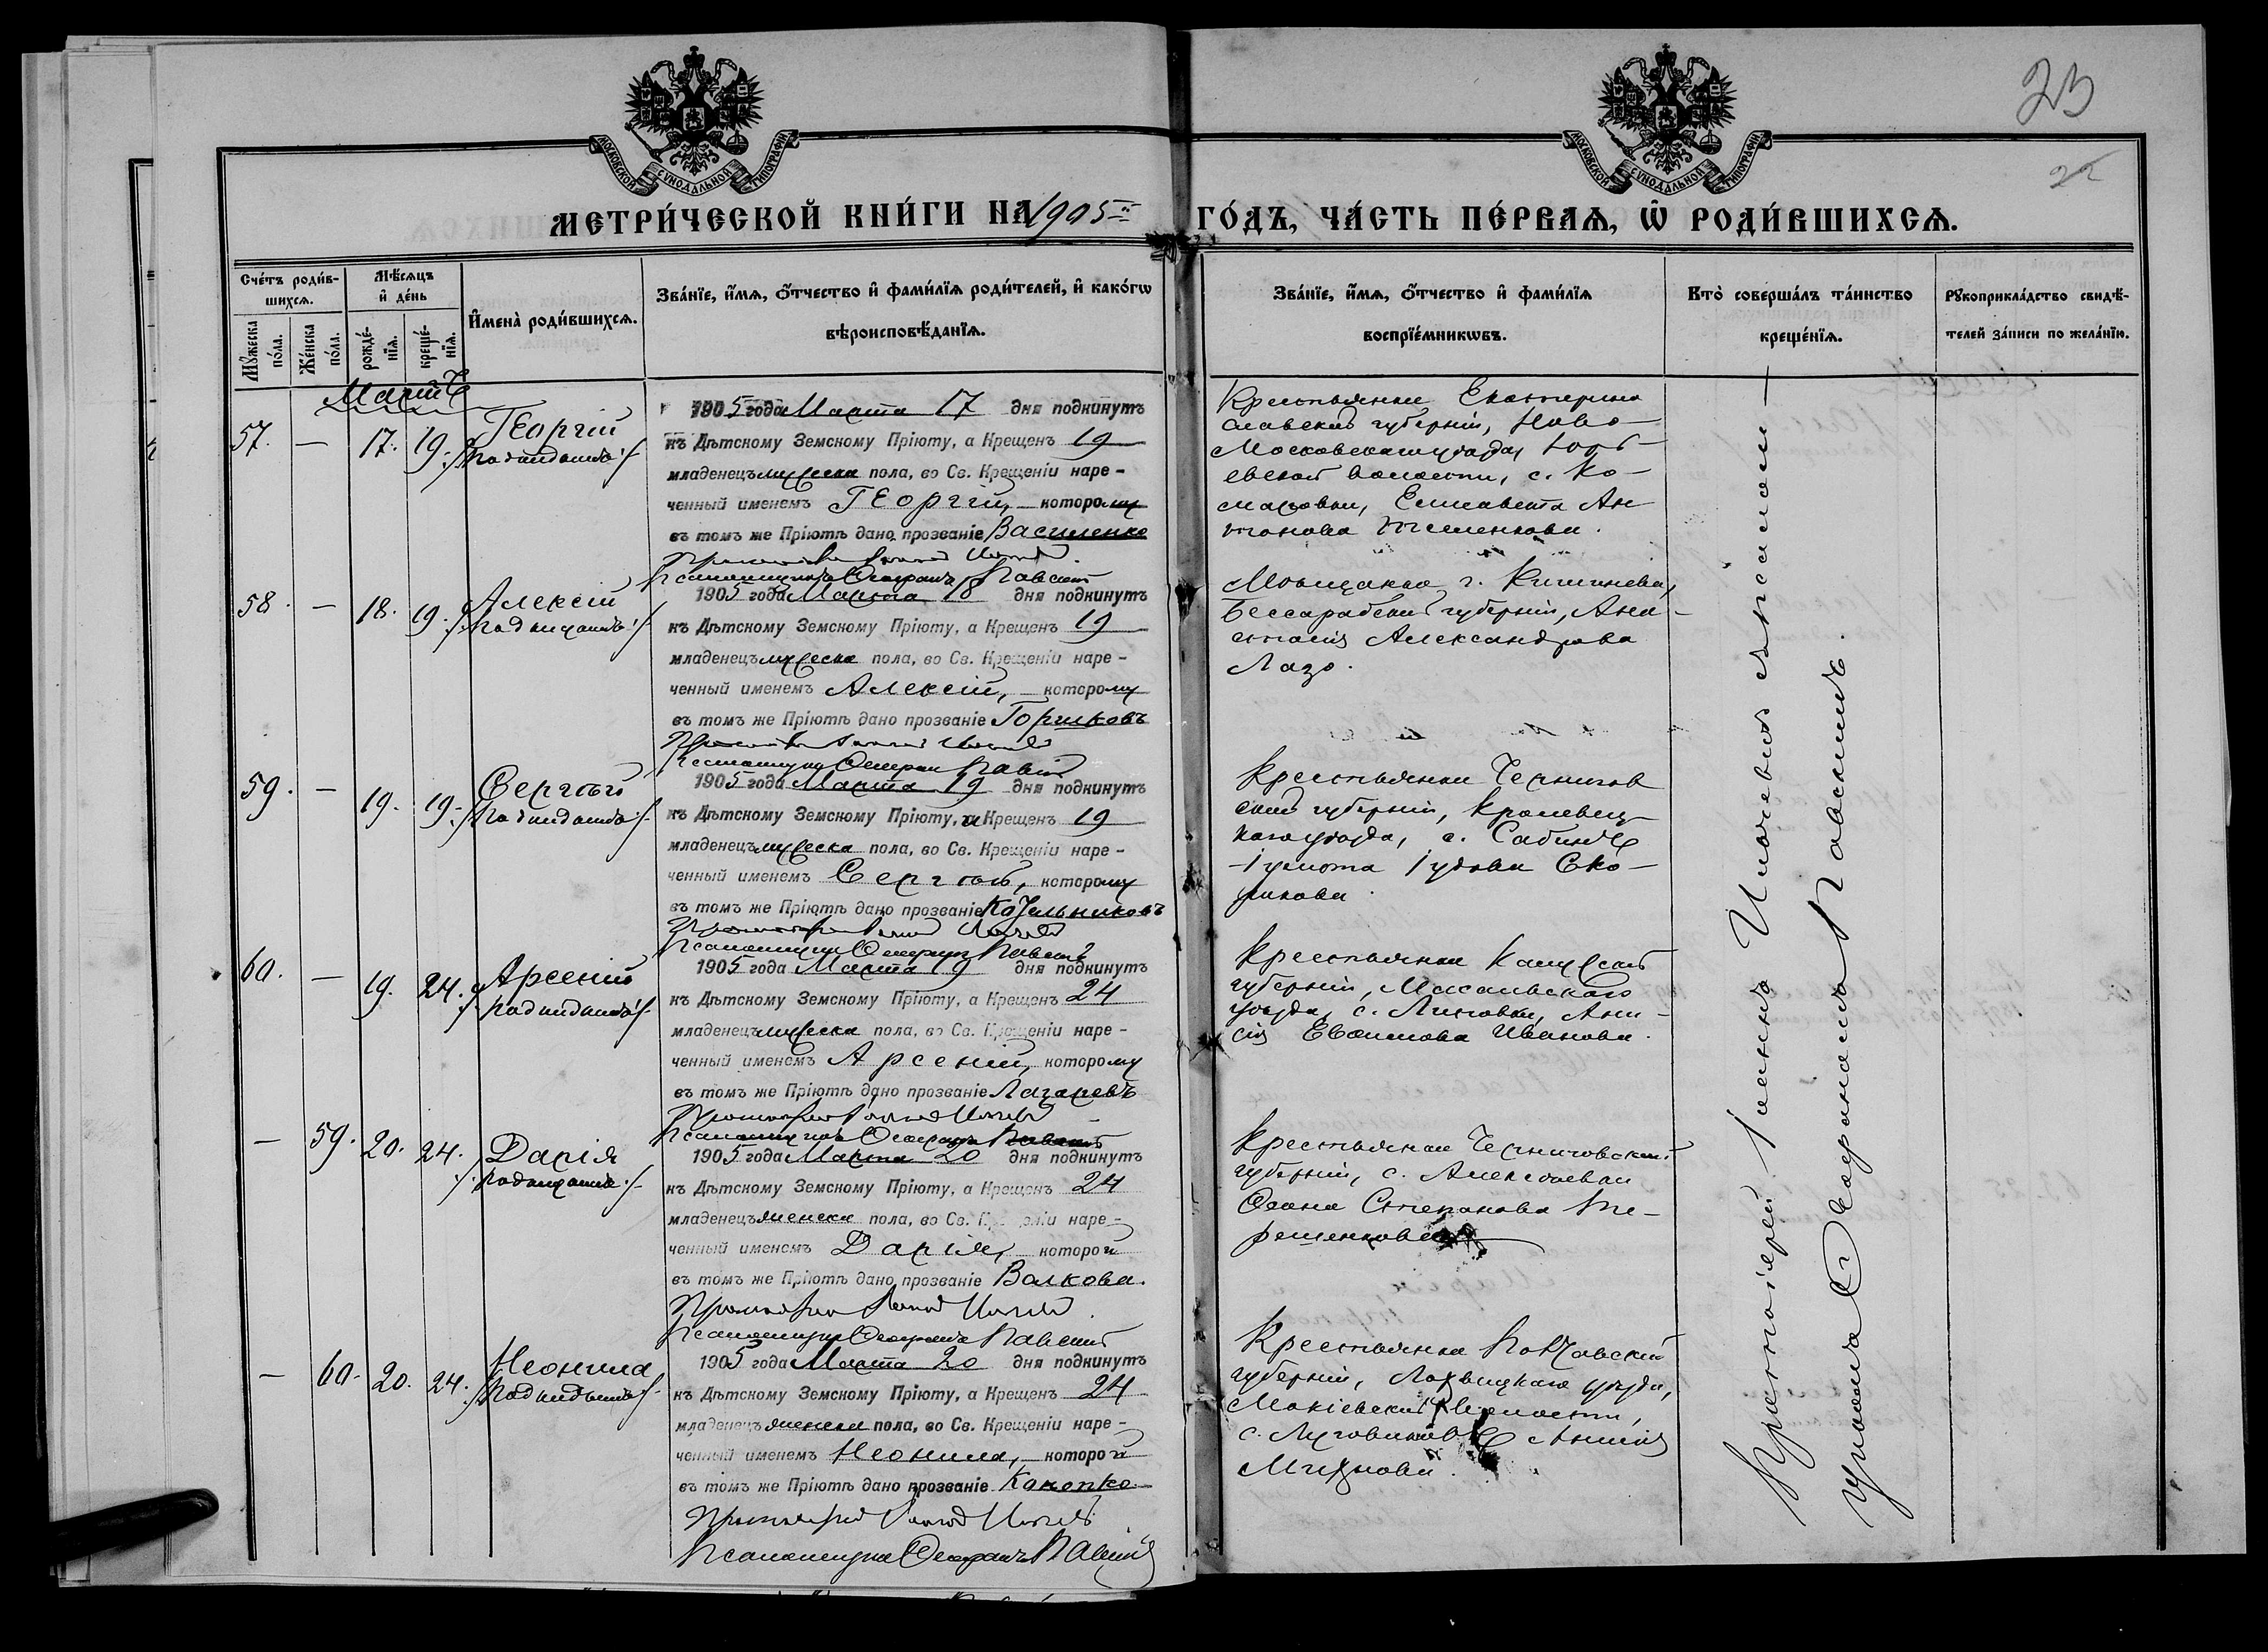 23
22
МОСКОВСКОЙ СѴНОДАЛЬНОЙ ТИПОГРАФІИ
МОСКОВСКОЙ СѴНОДАЛЬНОЙ ТИПОГРАФІИ
МЕТРИ́ЧЕСКОЙ КНИ́ГИ НА 1905й ГО́ДЪ, ЧА́СТЬ ПЕ́РВАѦ, Ѡ҆ РОДИ́ВШИХСѦ.
Сче́тъ роди́в-
шихсѧ.
Мꙋ́жеска по́ла.
Же́нска по́ла.
Мѣ́сѧцъ и҆ де́нь
рожде́-нїѧ.
креще́-нїѧ.
И҆мена̀ роди́вшихсѧ.
Зва́нїе, и҆́мѧ, ѻ҆́тчество и҆ фами́лїѧ роди́телей, и҆ како́гѡ
вѣроисповѣ́данїѧ.
Зва́нїе, и҆́мѧ, ѻ҆́тчество и҆ фами́лїѧ
воспрїе́мникѡвъ.
Кто̀ соверша́лъ та́инство
креще́нїѧ.
Рꙋкоприкла́дство свидѣ́-
телей за́писи по жела́нїю.
Мартъ
57. — 17. 19. Георгій
подкидышъ
1905 года Марта 17 дня подкинутъ
къ Дѣтскому Земскому Пріюту, а Крещенъ 19
младенецъ мужеска пола, во Св. Крещеніи наре-
ченный именемъ Георгій, которому
въ томъ же Пріютѣ дано прозваніе Василенко
Псаломщикъ Павскій
Крестьянка Екатерино
славской губерніи, Ново-
Московскаго уѣзда,
волости, с. Ко-
Елисавета Ан
тонова
58. — 18. 19. Алексій
подкидышъ
1905 года Марта 18 дня подкинутъ
къ Дѣтскому Земскому Пріюту, а Крещенъ 19
младенецъ мужеска пола, во Св. Крещеніи наре-
ченный именемъ Алексій, которому
въ томъ же Пріютѣ дано прозваніе Горшковъ
Псаломщикъ Павскій
Мѣщанка г. Кишинева,
Бессарабской губерніи, Ана-
стасія Александрова
Лазо.
59. — 19. 19. Сергѣй
подкидышъ
1905 года Марта 19 дня подкинутъ
къ Дѣтскому Земскому Пріюту, а Крещенъ 19
младенецъ мужеска пола, во Св. Крещеніи наре-
ченный именемъ Сергѣй, которому
въ томъ же Пріютѣ дано прозваніе Козельниковъ
Псаломщикъ Павскій
Крестьянка Чернигов
ской губерніи, Кролевец-
каго уѣзда, с.
60. — 19. 24. Арсеній
подкидышъ
1905 года Марта 19 дня подкинутъ
къ Дѣтскому Земскому Пріюту, а Крещенъ 24
младенецъ мужеска пола, во Св. Крещеніи наре-
ченный именемъ Арсеній, которому
въ томъ же Пріютѣ дано прозваніе Лазаревъ
Псаломщикъ Павскій
Крестьянка Калужской
губерніи, Масальскаго
уѣзда, с. Ани-
сія Евѳимова Иванова.
— 59. 20. 24. Дарія
подкидышъ
1905 года Марта 20 дня подкинутъ
къ Дѣтскому Земскому Пріюту, а Крещенъ 24
младенецъ женска пола, во Св. Крещеніи наре-
ченный именемъ Дарія, которой
въ томъ же Пріютѣ дано прозваніе Волкова.
Псаломщикъ Павскій
Крестьянка Черниговской
губерніи, с. Алексѣевки
Степанова Те-
рещенкова
— 60. 20. 24. Неонила
подкидышъ
1905 года Марта 20 дня подкинутъ
къ Дѣтскому Земскому Пріюту, а Крещенъ 24
младенецъ женска пола, во Св. Крещеніи наре-
ченный именемъ Неонила, которой
въ томъ же Пріютѣ дано прозваніе Конопко
Псаломщикъ Павскій
Крестьянка Полтавской
губерніи, Лохвицкаго уѣзда,
волости,
Протоіерей Іоаннъ съ псаломщ-
Павскимъ.